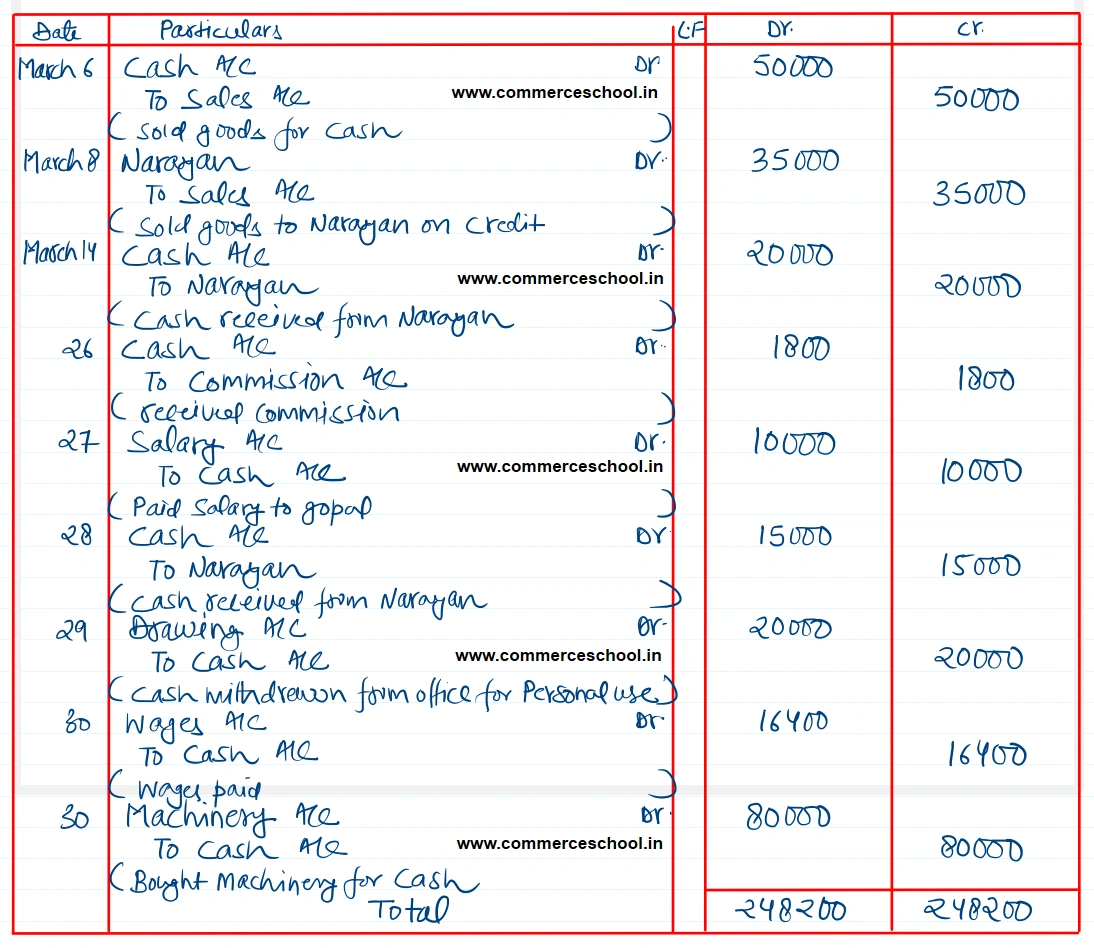 Date Particulars L.F Dr. Cr.
March 6 Cash A/C Dr 50000
To Sales A/C www.commerceschool.in 50000
( Sold goods for Cash )
March 8 Narayan Dr. 35000
To Sales A/C 35000
( Sold goods to Narayan on Credit )
March 14 Cash A/C Dr. 20000
To Narayan www.commerceschool.in 20000
( Cash received form Narayan )
26 Cash A/C Dr. 1800
To Commission A/C 1800
( received Commission )
27 Salary A/C Dr. 10000
To Cash A/C www.commerceschool.in 10000
( Paid Salary to gopal )
28 Cash A/C Dr 15000
To Narayan 15000
( Cash received from Narayan )
29 Drawing A/C Dr. 20000
To Cash A/C www.commerceschool.in 20000
( Cash withdrewn form office for Personal use )
30 Wages A/C Dr. 16400
To Cash A/C 16400
( Wages paid )
30 Machinery A/C Dr. 80000
To Cash A/C www.commerceschool.in 80000
( Bought Machinery for Cash
Total 248200 248200